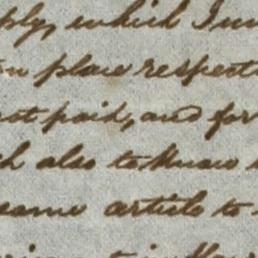 ply, which I
in place respect
st paid, and for
ch also to know
same article to